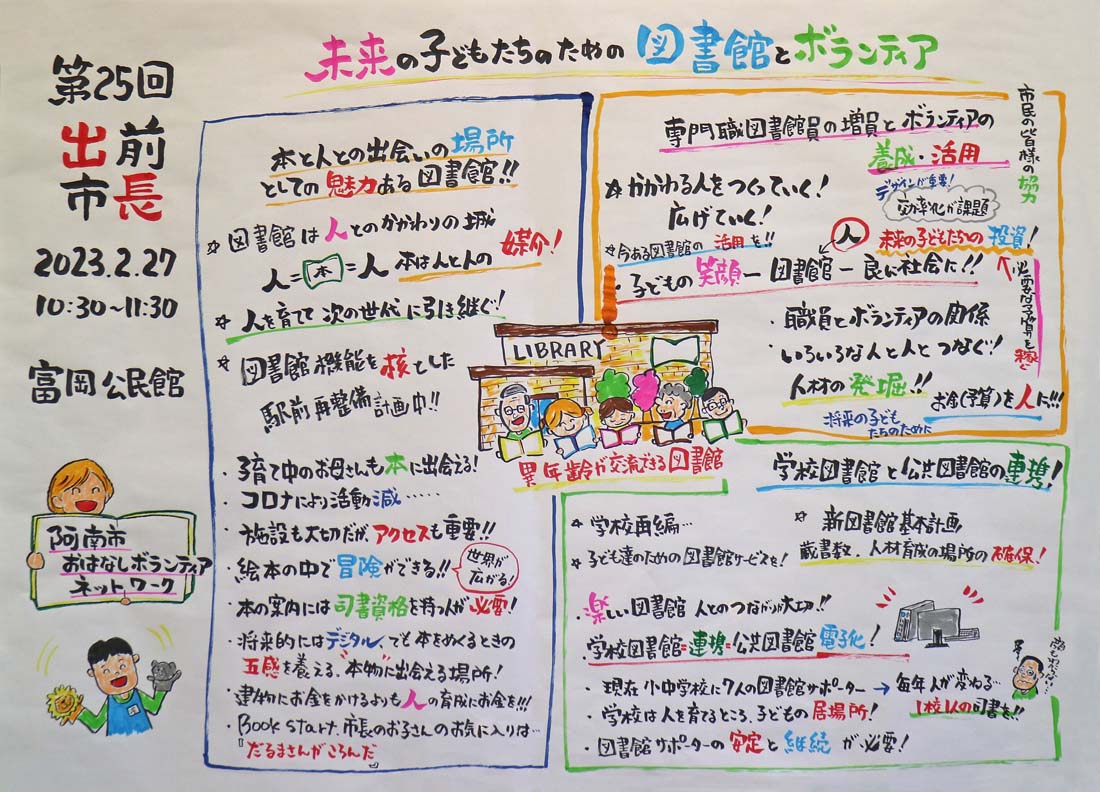 未来の子どもたちのための図書館とボランティア
第25回
出前
市長
2023.2.27
10:30～11:30
富岡公民館
阿南市
おはなしボランティア
ネットワーク
本と人との出会いの場所
としての魅力ある図書館!!
☆図書館は人とのかかわりの城
人=本=人 本は人と人の媒介!
☆人を育てて次の世代に引き継ぐ!
☆図書館機能を核とした
駅前再整備計画中!!
・子育て中のお母さんも本に出会える!
・コロナにより活動減……
・施設も大切だが、アクセスも重要!!
・絵本の中で冒険ができる!!
世界が
広がる!
・本の案内には司書資格を持つ人が必要!
・将来的にはデジタル、でも本をめくるときの
五感を養える、"本物"に出会える場所!
・建物にお金をかけるよりも人の育成にお金を!!!
・Book start、市長のお子さんのお気に入りは…
『だるまさんがころんだ』
専門職図書館員の増員とボランティアの
養成・活用
市民の皆様の協力
☆かかわる人をつくっていく!
広げていく!
デザインが重要!
効率化が課題
☆今ある図書館の活用を!!
人
未来の子どもたちへの投資!
・子どもの笑顔ー図書館ー良い社会に!!
必要な予算を稼ぐ
・職員とボランティアの関係
・いろいろな人と人とつなぐ!
人材の発掘!!
お金(予算)を人に!!!
将来の子ども
たちのために
LIBRARY
異年齢が交流できる図書館
学校図書館と公共図書館の連携!
☆学校再編…
☆新図書館基本計画
蔵書数、人材育成の場所の確保!
☆子ども達のための図書館サービスを!
・楽しい図書館 人とのつながりが大切!!
学校図書館=連携=公共図書館 電子化!
・現在小中学校に7人の図書館サポーター→毎年人が変わる…
・学校は人を育てるところ、子どもの居場所!
1校1人の司書を!!
・図書館サポーターの安定と継続が必要!